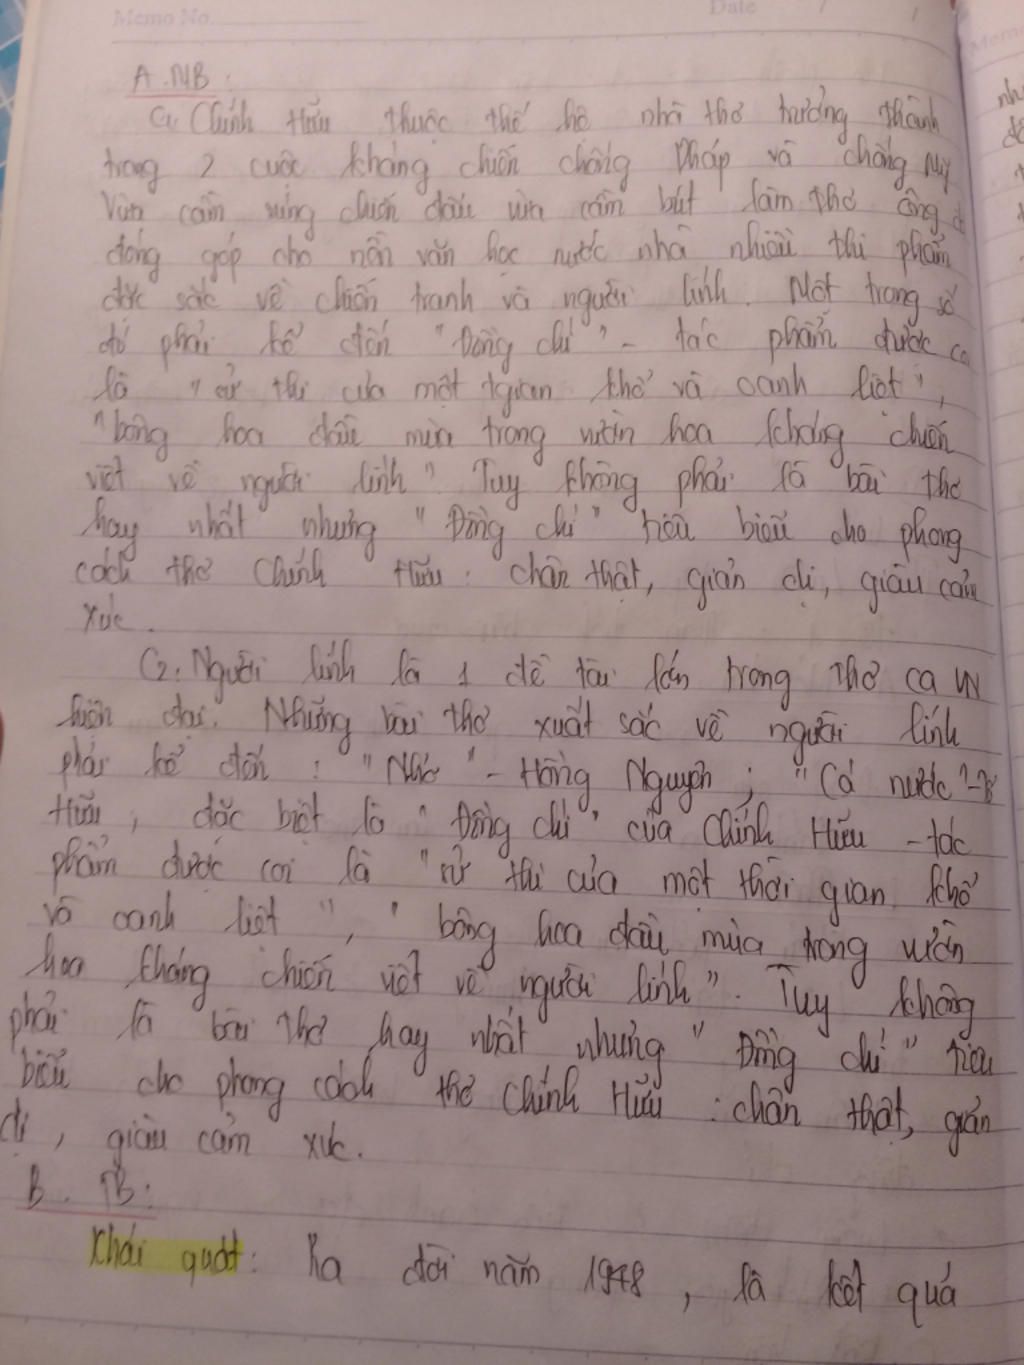 Memo No.
Date / /
A. MB:
C1. Chính Hữu thuộc thế hệ nhà thơ trưởng thành
trong 2 cuộc kháng chiến chống Pháp và chống Mỹ
Vừa cầm súng chiến đấu vừa cầm bút làm thơ ông đ
đóng góp cho nền văn học nước nhà nhiều thi phẩm
đặc sắc về chiến tranh và người lính. Một trong số
đó phải kể đến "Đồng chí" - tác phẩm được co
là "sử thi của một tgian khổ và oanh liệt",
"bông hoa đầu mùa trong vườn hoa kháng chiến
viết về người lính". Tuy không phải là bài thơ
hay nhất nhưng "Đồng chí" tiêu biểu cho phong
cách thơ Chính Hữu: chân thật, giản dị, giàu cảm
xúc.
C2. Người lính là 1 đề tài lớn trong thơ ca VN
hiện đại. Những bài thơ xuất sắc về người lính
phải kể đến: "Nhớ" - Hồng Nguyên; "Cá nước" -
Hữu, đặc biệt là "Đồng chí" của Chính Hữu - tác
phẩm được coi là "sử thi của một thời gian khổ
và oanh liệt", "bông hoa đầu mùa trong vườn
hoa kháng chiến viết về người lính". Tuy không
phải là bài thơ hay nhất nhưng "Đồng chí" tiêu
biểu cho phong cách thơ Chính Hữu: chân thật, giản
dị, giàu cảm xúc.
B. TB:
Khái quát: Ra đời năm 1948, là kết quả